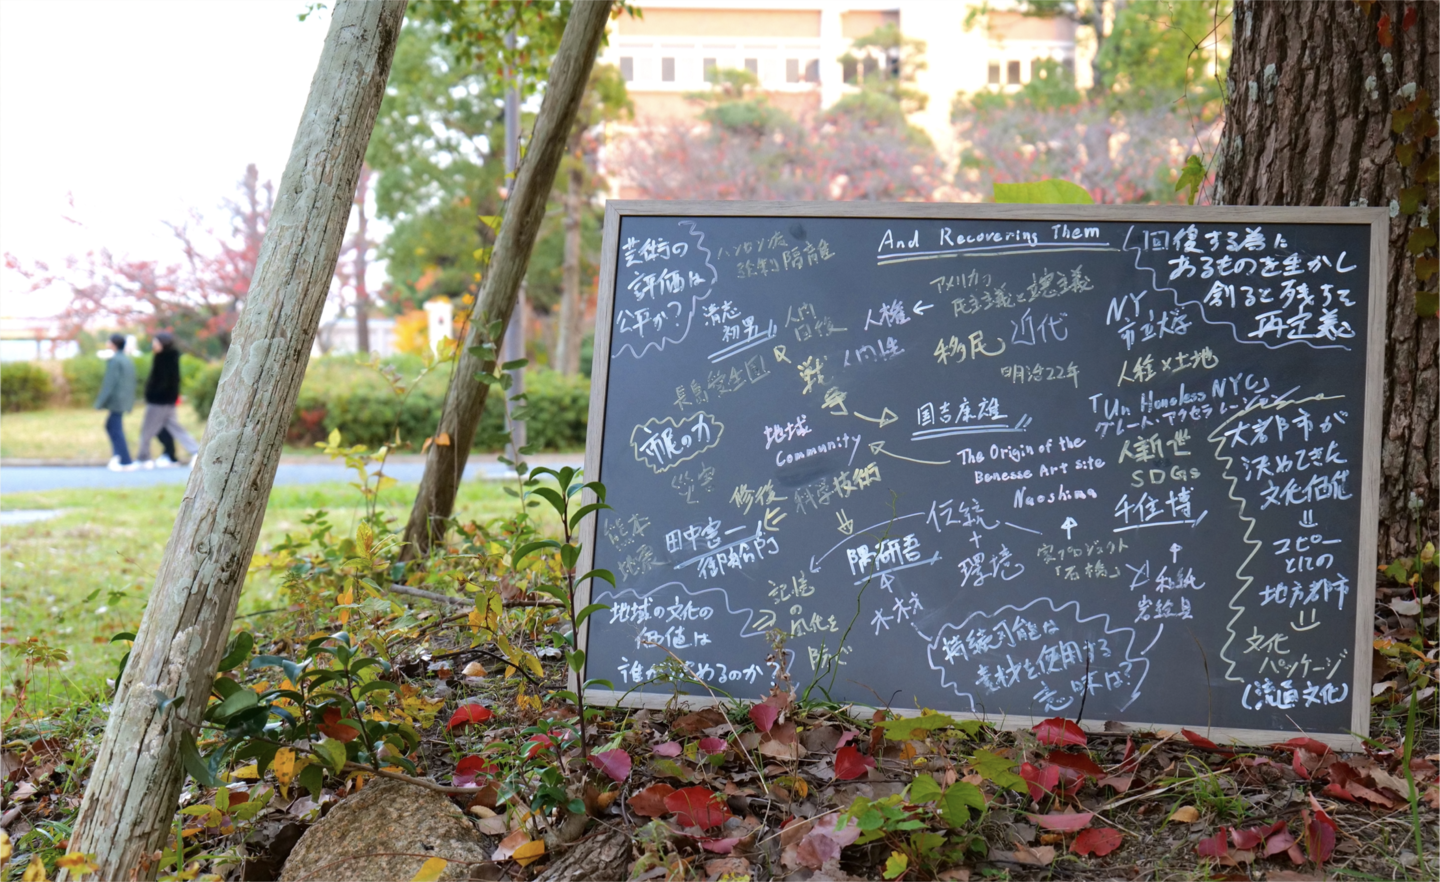 And Recovering Them
芸術の
評価は
公平か?
ハンセン病
絵画 隔離
清志
初男
人間
回復
人権
人間性
アメリカ
民主主義と
移民
近代
明治22年
NY,
市立大学
人種×土地
回復する為に
あるものを生かし
創ると残ちて
再定義
長島愛生園
戦
争
国吉康雄
「Un Homeless NYC」
グレート・アクセラレーション
人新世
SDGs
市民の力
地域
Community
The Origin of the
Benesse Art site
Naoshima
災害
修復
科学技術
千住博
大都市が
決めてきた
文化価値
コピー
とにの
地方都市
文化
パッケージ
(流通文化)
熊本
地震
田中憲一
御舩
隈研吾
伝統
+
環境
家プロジェクト
「石橋」
和紙
岩絵具
木材
記憶
の
風化を
防ぐ
地域の文化の
価値は
誰が決めるのか?
持続可能は
素材を使用する
意味は?